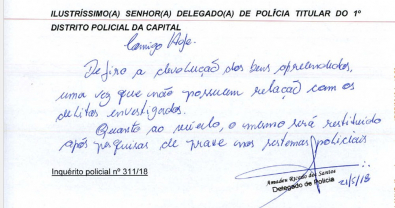 ILUSTRÍSSIMO(A) SENHOR(A) DELEGADO(A) DE POLÍCIA TITULAR DO 1º
DISTRITO POLICIAL DA CAPITAL
Comigo Hoje.
Defiro a devolução dos bens apreendidos,
uma vez que não possuem relação com os
delitos investigados.
Quanto ao veículo, o mesmo será restituído
após pesquisas de praxe nos sistemas policiais
Inquérito policial nº 311/18
dos Santos
Delegado de Polícia
21/5/18